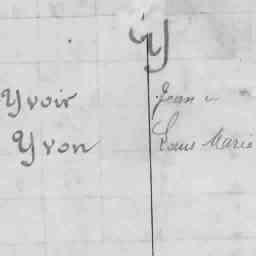 Y
Yvoir Jean
Yvon Louis Marie